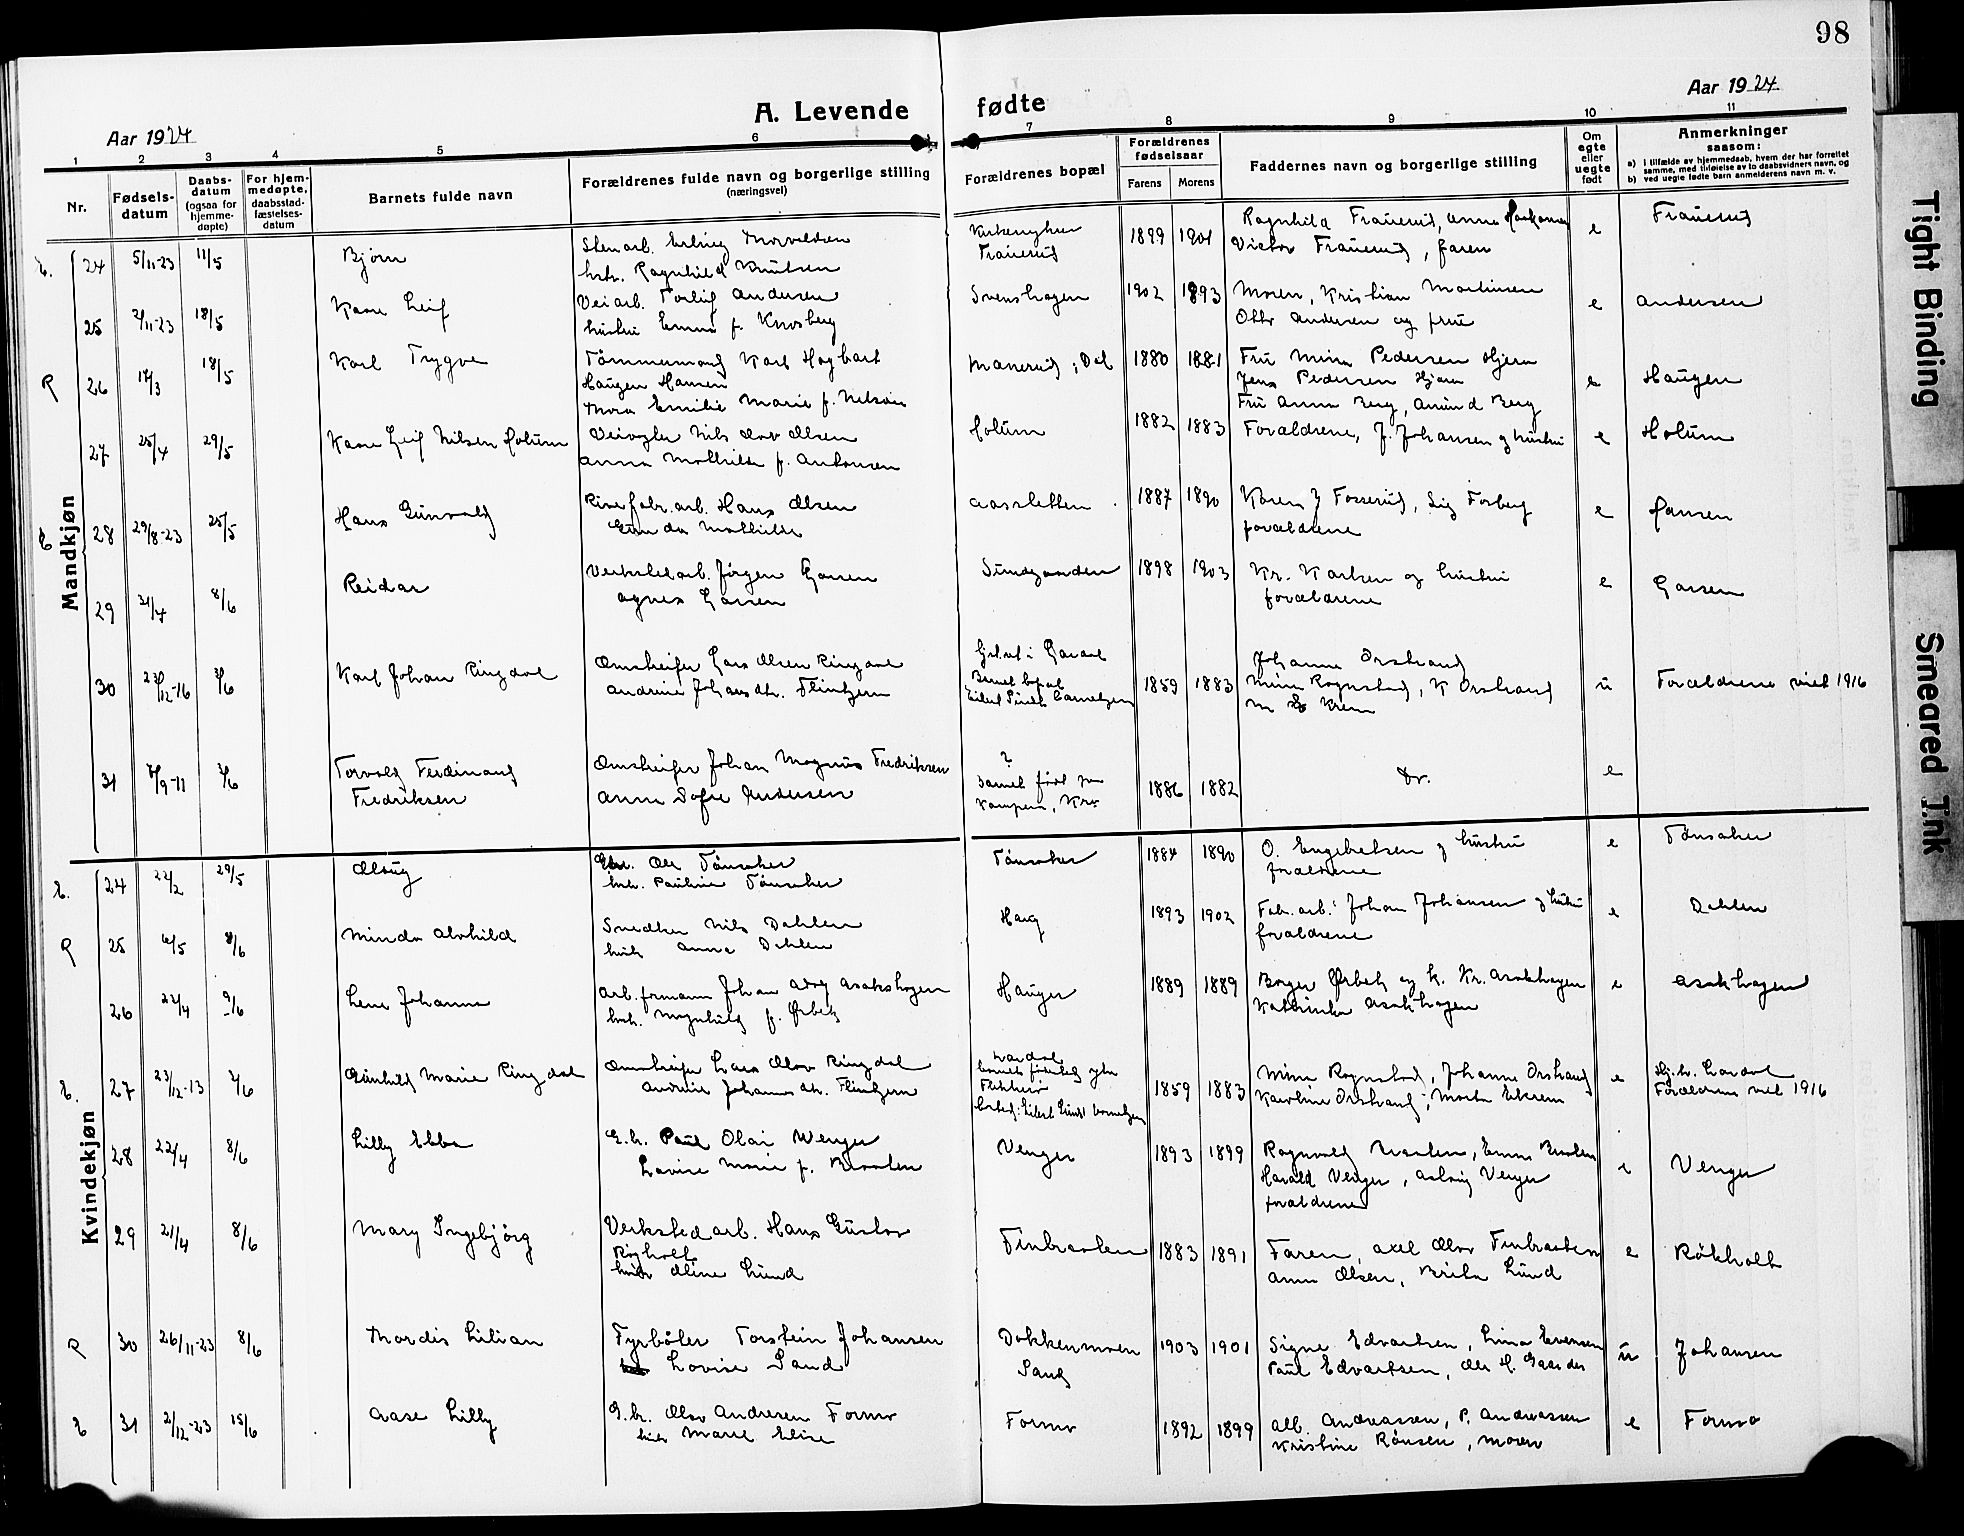 98
A. Levende fødte
Aar 1924
Aar 1924
1 2 3 4 5 6 7 8 9 10 11
Nr.
Fødsels-
datum
Daabs-
datum
(ogsaa for
hjemme-
døpte)
For hjem-
medøpte,
daabsstad-
fæstelses-
datum
Barnets fulde navn
Forældrenes fulde navn og borgerlige stilling
(næringsvei)
Forældrenes bopæl
Forældrenes
fødselsaar
Farens Morens
Faddernes navn og borgerlige stilling
Om
egte
eller
uegte
født
Anmerkninger
saasom:
a) i tilfælde av hjemmedaab, hvem der har forrettet
samme, med tilføielse av to daabsvidners navn, og
b) ved uegte fødte barn anmelderens navn m. v.
Mandkjøn
24 5/11-23 11/5 Bjørn
Stenarb. Erling Thorvaldsen
hstr. Ragnhild Knutsen
Frauerud
1899 1901
Ragnhild Frauerud, Anna
Victor Frauerud, faren
e Frauerud
25 2/11-23 18/5 Kaare Leif
Veiarb. Torleif Andersen
hustru Emma f. Knosberg
Svenshagen
1902 1893
Moren, Kristian Martinsen
Otto Andersen og frue
e Andersen
26 17/3 18/5 Karl Trygve
Tømmermand Karl Hagbart
Haugen Hansen
Thora Emilie Marie f. Nelson
Manerud, Dal
1880 1881
Fru Mina Pedersen Hjern
Jens Pedersen Hjern
Fru Anna Berg, Amund Berg
e Haugen
27 25/4 29/5 Kaare Leif Nilsen Holum
Veivogter Nils Olav Olsen
Anna Mathilde f. Antonsen
Holum
1882 1883
Forældrene, J. Johansen og hustru
e Holum
28 29/8-23 25/5 Hans Gunvald
fabr.arb. Hans Olsen
Gunda Mathilde
Aassletten
1887 1890
Karen Fosserud, Sig Forberg
forældrene
e Hansen
29 31/4 8/6 Reidar
Verkstedarb. Jørgen Garsen
Agnes Garsen
Sundgaarden
1898 1903
Kr. Karlsen og hustru
forældrene
e Garsen
30 3/6 Karl Johan Ringdal
Omstreifer Lars Olsen Ringdal
Andrine Johansdtr. Flintzen
Barnets bopæl
Eilert Sundt
1859 1883
Johanne Orstrand
Mina Rognstad, K Orstrand
u Forældrene viet 1916
31 7/9-11 3/6 Torvald Ferdinand
Fredriksen
Omstreifer Johan Magnus Fredriksen
Anna Sofie Andersen
?
barnet født paa
Kampen, Kra
1886 1882
Do.
e
Kvindekjøn
24 22/2 29/5 Olaug
Gbr. Ole Tønsaker
hstr. Pauline Tønsaker
Tønsaker
1884 1890
O. Engebretsen og hustru
forældrene
e Tønsaker
25 6/5 8/6 Minda Alvhild
Snedker Nils Dahlen
hustr. Anna Dahlen
Haug
1893 1902
Fabr.arb. Johan Johansen og hustru
forældrene
e Dahlen
26 22/4 9/6 Lene Johanne
Arb.formann Johan Adolf Asakshagen
hstr. Magnhild f. Ørbek
Hauger
1889 1889
Borger Ørbek og h. Kr. Asakhagen
Kathrinka Asakhagen
e Asakhagen
27 23/12-13 3/6 Gunhild Marie Ringdal
Omstreifer Lars Olav Ringdal
Andrine Johannesdtr. Flintzen
Flekkerø
1859 1883
Mina Rognstad, Johanne Orstrand
Karoline Orstrand, Martin Ekrem
e
Forældrene viet 1916
28 22/4 8/6 Lilly Ebba
G.br. Paul Olai Wenger
Lovise Marie f. Braaten
Venger
1893 1899
Ragnvald Braaten, Emma Braaten
Harald Venger, Aslaug Venger
forældrene
e Venger
29 21/4 8/6 Mary Ingebjørg
Verkstedarb. Hans Gustav
Røkholt
hustr. Oline Lund
Finbraaten
1883 1891
Faren, Axel Olav Finbraaten
Anna Olsen, Brita Lund
e Røkholt
30 26/11-23 8/6 Thordis Lilian
Fyrbøter Torstein Johansen
Lovise Sand
Dokkenmoen
Sand
1903 1901
Signe Edvartsen, Lina Evensen
Paul Edvartsen, Ole H. Gaarder
u Johansen
31 2/12-23 15/6 Aase Lilly
G.br. Olav Andresen Formo
hustr. Marie Elise
Formo
1892 1899
Alb. Andreassen, P. Andreassen
Kristine Rønsen, moren
e Formo
Tight Binding
Smeared Ink